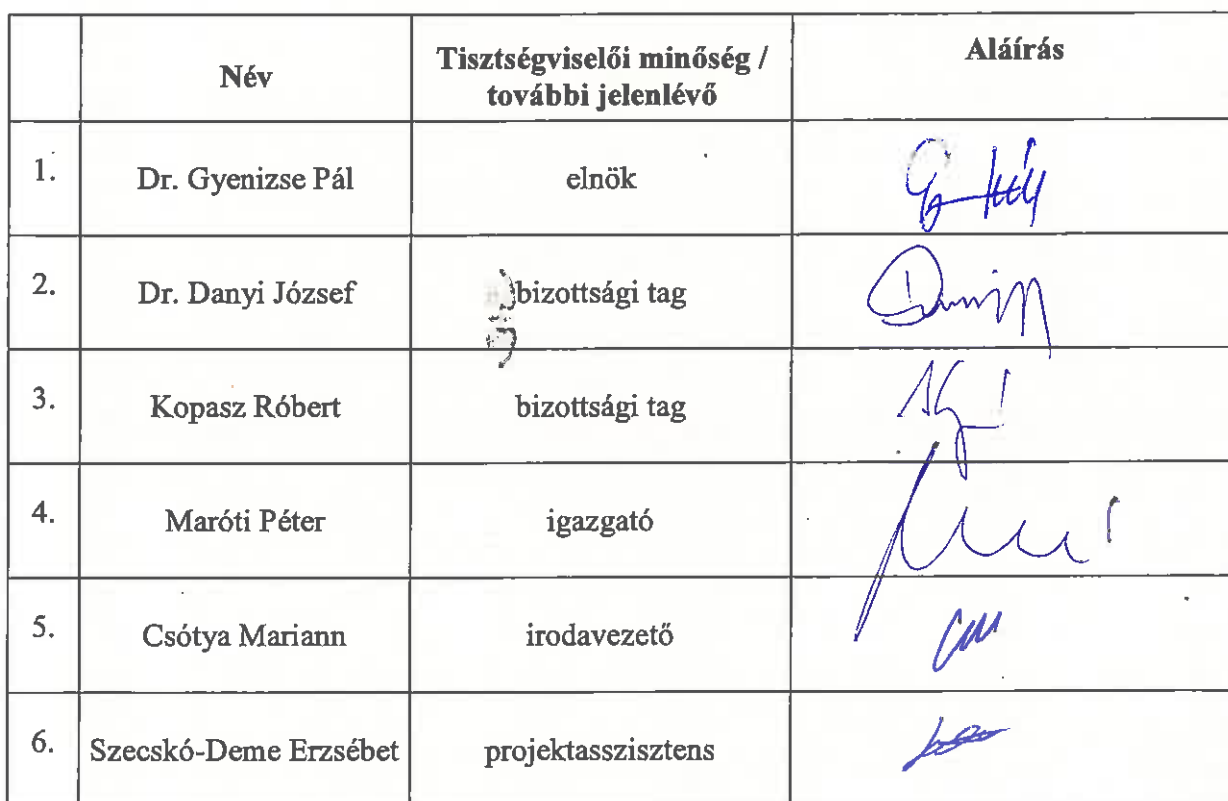 Név
Tisztségviselői minőség /
további jelenlévő
Aláírás
1.
Dr. Gyenizse Pál
elnök
2.
Dr. Danyi József
bizottsági tag
3.
Kopasz Róbert
bizottsági tag
4.
Maróti Péter
igazgató
5.
Csótya Mariann
irodavezető
6.
Szecskó-Deme Erzsébet
projektasszisztens